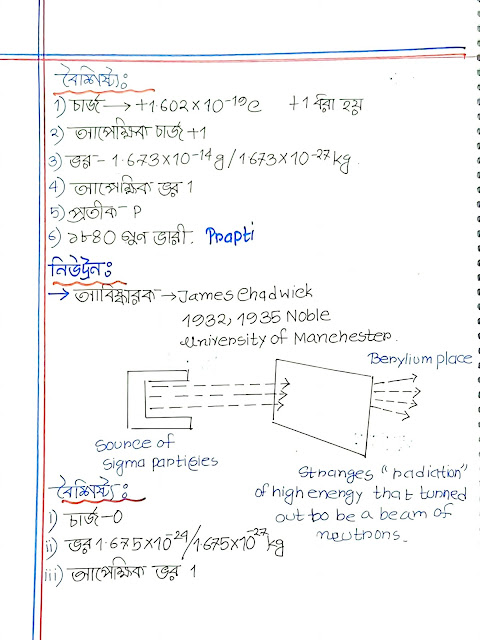 বৈশিষ্ট্য:
1) চার্জ → +1.602×10⁻¹⁹C +1 ধরা হয়
2) আপেক্ষিক চার্জ +1
3) ভর - 1.673×10⁻¹⁴g/1673×10⁻²⁷kg.
4) আপেক্ষিক ভর 1
5) প্রতীক - P
6) ১৮৪০ গুন ভারী. Prapti
নিউট্রন:
→ আবিষ্কারক → James Chadwick
1932, 1935 Noble
University of Manchester.
Benylium place
Source of
Sigma particles
Stranges "radiation"
of high energy that tunned
out to be a beam of
neutrons.
বৈশিষ্ট্য:
i) চার্জ - 0
ii) ভর 1.675×10⁻²⁴/1.675×10⁻²⁷kg
iii) আপেক্ষিক ভর 1